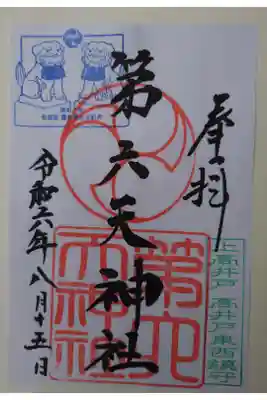 奉拝
上高井戸 高井戸東西鎮守
第六天神社
第六天神社
令和六年八月十五日